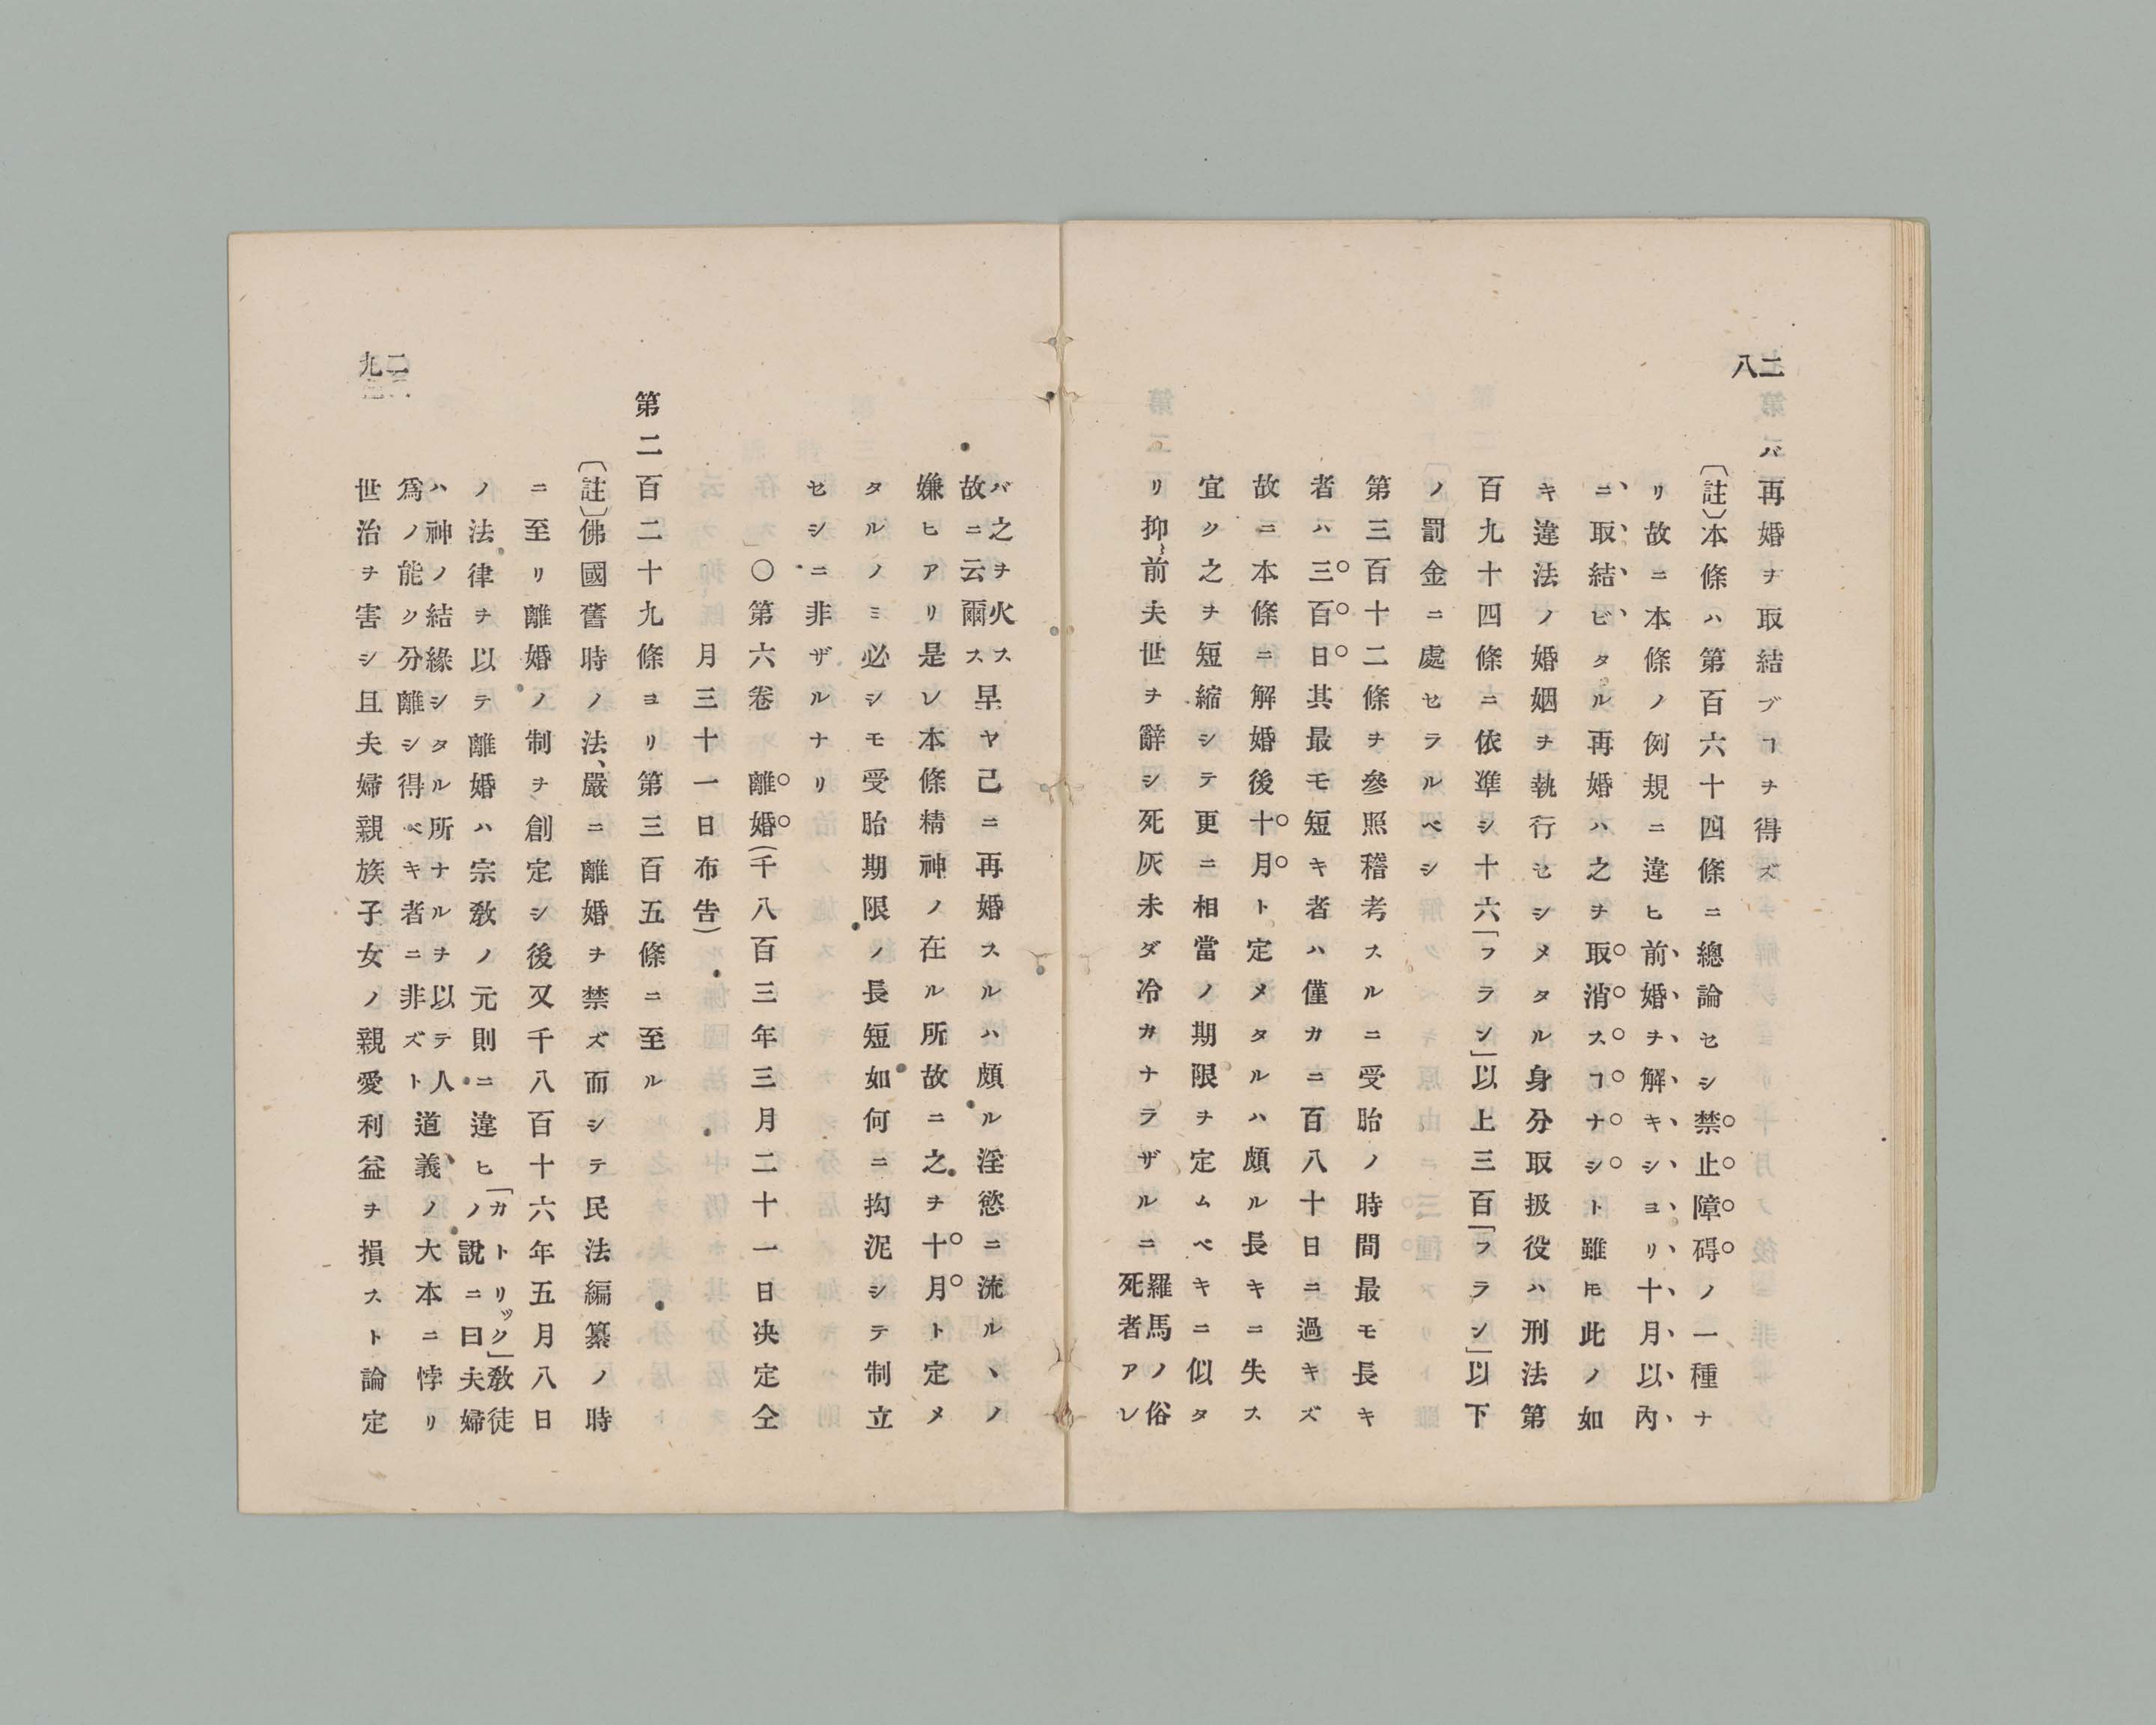 二八
バ再婚ヲ取結ブヿヲ得ズ
〔註〕本條ハ第百六十四條ニ總論セシ禁止障碍ノ一種ナ
リ故ニ本條ノ例規ニ違ヒ前婚ヲ解キシヨリ十月以內
ニ取結ビタル再婚ハ之ヲ取消スヿナシト雖モ此ノ如
キ違法ノ婚姻ヲ執行セシメタル身分取扱役ハ刑法第
百九十四條ニ依準シ十六「フラン」以上三百「フラン」以下
ノ罰金ニ處セラルベシ
第三百十二條ヲ參照稽考スルニ受胎ノ時間最モ長キ
者ハ三百日其最モ短キ者ハ僅カニ百八十日ニ過キズ
故ニ本條ニ解婚後十月ト定メタルハ頗ル長キニ失ス
宜ク之ヲ短縮シテ更ニ相當ノ期限ヲ定ムベキニ似タ
リ抑前夫世ヲ辭シ死灰未ダ冷カナラザルニ羅馬ノ俗死者アレ
バ之ヲ火ス故ニ云爾早ヤ己ニ再婚スルハ頗ル淫慾ニ流ルヽノ
嫌ヒアリ是レ本條精神ノ在ル所故ニ之ヲ十月ト定メ
タルノミ必シモ受胎期限ノ長短如何ニ拘泥シテ制立
セシニ非ザルナリ
〇第六卷 離婚(千八百三年三月二十一日决定仝
月三十一日布告)
第二百二十九條ヨリ第三百五條ニ至ル
〔註〕佛國舊時ノ法、嚴ニ離婚ヲ禁ズ而シテ民法編纂ノ時
ニ至リ離婚ノ制ヲ創定シ後又千八百十六年五月八日
ノ法律ヲ以テ離婚ハ宗敎ノ元則ニ違ヒ「カトリック」敎徒ノ說ニ曰夫婦
ハ神ノ結緣シタル所ナルヲ以テ人爲ノ能ク分離シ得ベキ者ニ非ズト道義ノ大本ニ悖リ
世治ヲ害シ且夫婦親族子女ノ親愛利益ヲ損スト論定
二九